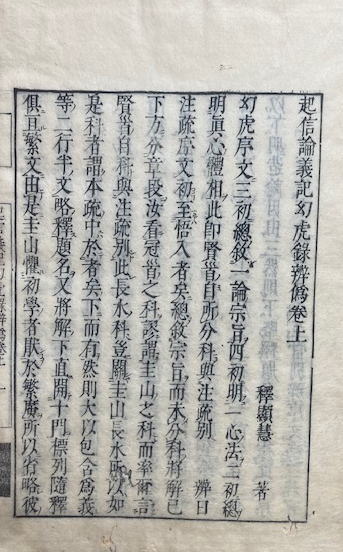 起信論義記幻虎錄辨僞卷上
釋顯慧 著
幻虎序文三初總叙一論宗旨四初明一心法二初總
明眞心體相此卽賢首自所分科與注疏別 辨曰
注疏序文初至悟入者矣總敘宗旨而未分科將解已
下方分章段汝看冠首之科謬謂圭山之科而率爾言
賢首自科與注疏別此長水科豈關圭山長水所以如
是科者謂本疏中於者矣下而有然則大以包含爲義
等二行半文略釋題名又將解下直開十門標列隨釋
俱且繁文由是圭山懼初學者厭於繁廣所以省略彼